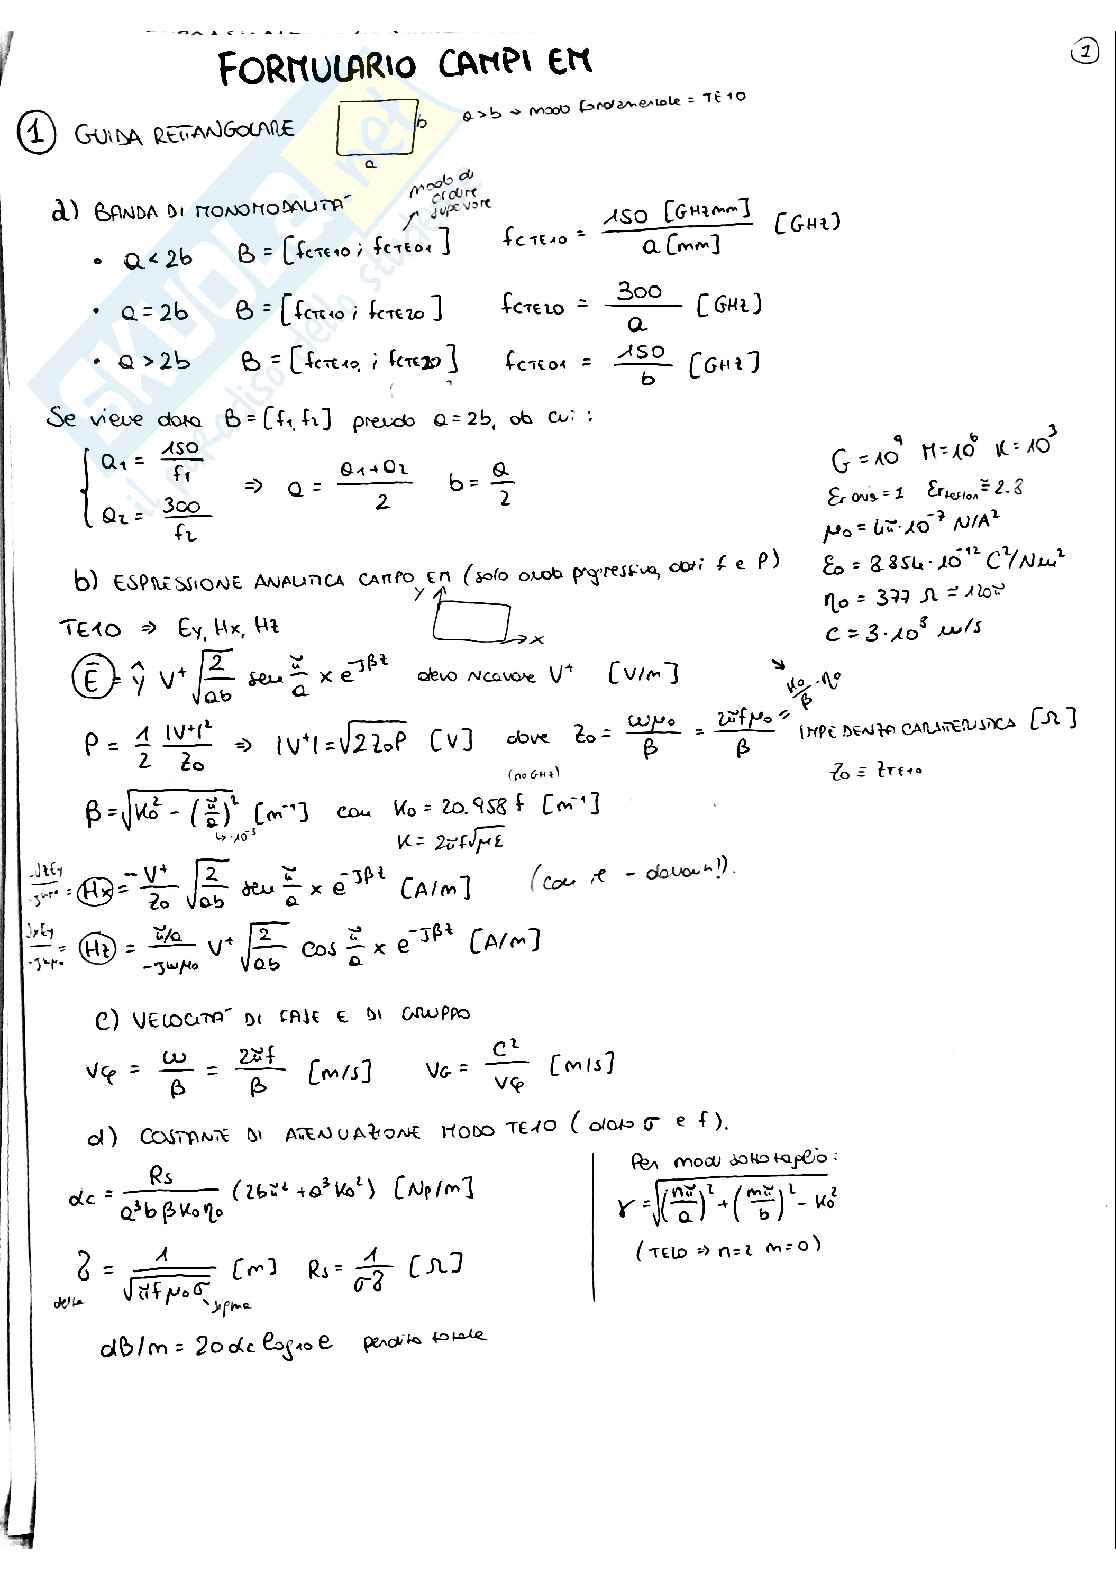 FORMULARIO CAMPI EM
1
1 GUIDA RETTANGOLARE
b
a
a>b → modo fondamentale = TE10
a) BANDA DI MONOMODALITÀ
modo di ordine superiore
• a < 2b B = [fcTE10 ; fcTE01] fcTE10 = 150 [GHz mm] / a [mm] [GHz]
• a = 2b B = [fcTE10 ; fcTE20] fcTE20 = 300 / a [GHz]
• a > 2b B = [fcTE10 ; fcTE20] fcTE01 = 150 / b [GHz]
Se viene data B = [f1, f2] prendo a = 2b, da cui :
{ a1 = 150 / f1
a2 = 300 / f2
⇒ a = (a1 + a2) / 2 b = a / 2
G = 10^9 M = 10^6 K = 10^3
εr aria = 1 εr teflon = 2.8
μ0 = 4π·10^-7 N/A²
ε0 = 8.854·10^-12 C²/Nm²
η0 = 377 Ω = 120π
c = 3·10^8 m/s
b) ESPRESSIONE ANALITICA CAMPO EM (solo onda progressiva, dati f e P)
y
x
TE10 ⇒ Ey, Hx, Hz
Ē = ŷ V+ √(2/ab) sen π/a x e^-jβz devo ricavare V+ [V/m]
P = 1/2 |V+|²/Z0 ⇒ |V+| = √2Z0P [V] dove Z0 = ωμ0/β = 2πfμ0/β = IMPEDENZA CARATTERISTICA [Ω]
K0/β · η0
(no GHz)
Z0 = ZTE10
β = √(K0² - (π/a)²) [m^-1] con K0 = 20.958 f [m^-1]
↳ ·10^-3
K = 2πf√με
Hx = -V+/Z0 √(2/ab) sen π/a x e^-jβz [A/m] (con il - davanti!).
Hz = π/a / -jωμ0 V+ √(2/ab) cos π/a x e^-jβz [A/m]
c) VELOCITÀ DI FASE E DI GRUPPO
vφ = ω/β = 2πf/β [m/s] vG = c²/vφ [m/s]
d) COSTANTE DI ATENUAZIONE MODO TE10 (dato σ e f).
αc = Rs / a³bβK0η0 (2bπ² + a³K0²) [Np/m]
δ = 1 / √πfμ0σ [m] Rs = 1/σδ [Ω]
delta
sigma
dB/m = 20 αc log10 e perdita totale
Per modi sottotaglio :
γ = √((nπ/a)² + (mπ/b)² - K0²)